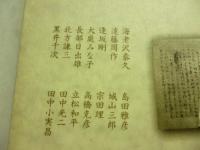 海老沢泰久
遠藤周作
逢坂剛
大庭みな子
長部日出雄
北方謙三
黒井千次
島田雅彦
城山三郎
宗田理
高橋克彦
立松和平
田中光二
田中小実昌